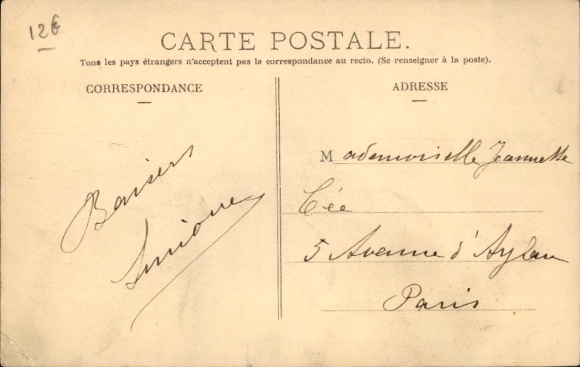 12€
CARTE POSTALE.
Tous les pays étrangers n'acceptent pas la correspondance au recto. (Se renseigner à la poste).
CORRESPONDANCE
ADRESSE
Baisers
Mademoiselle Jeannette
Cée
5 Avenue d'Aylau
Paris